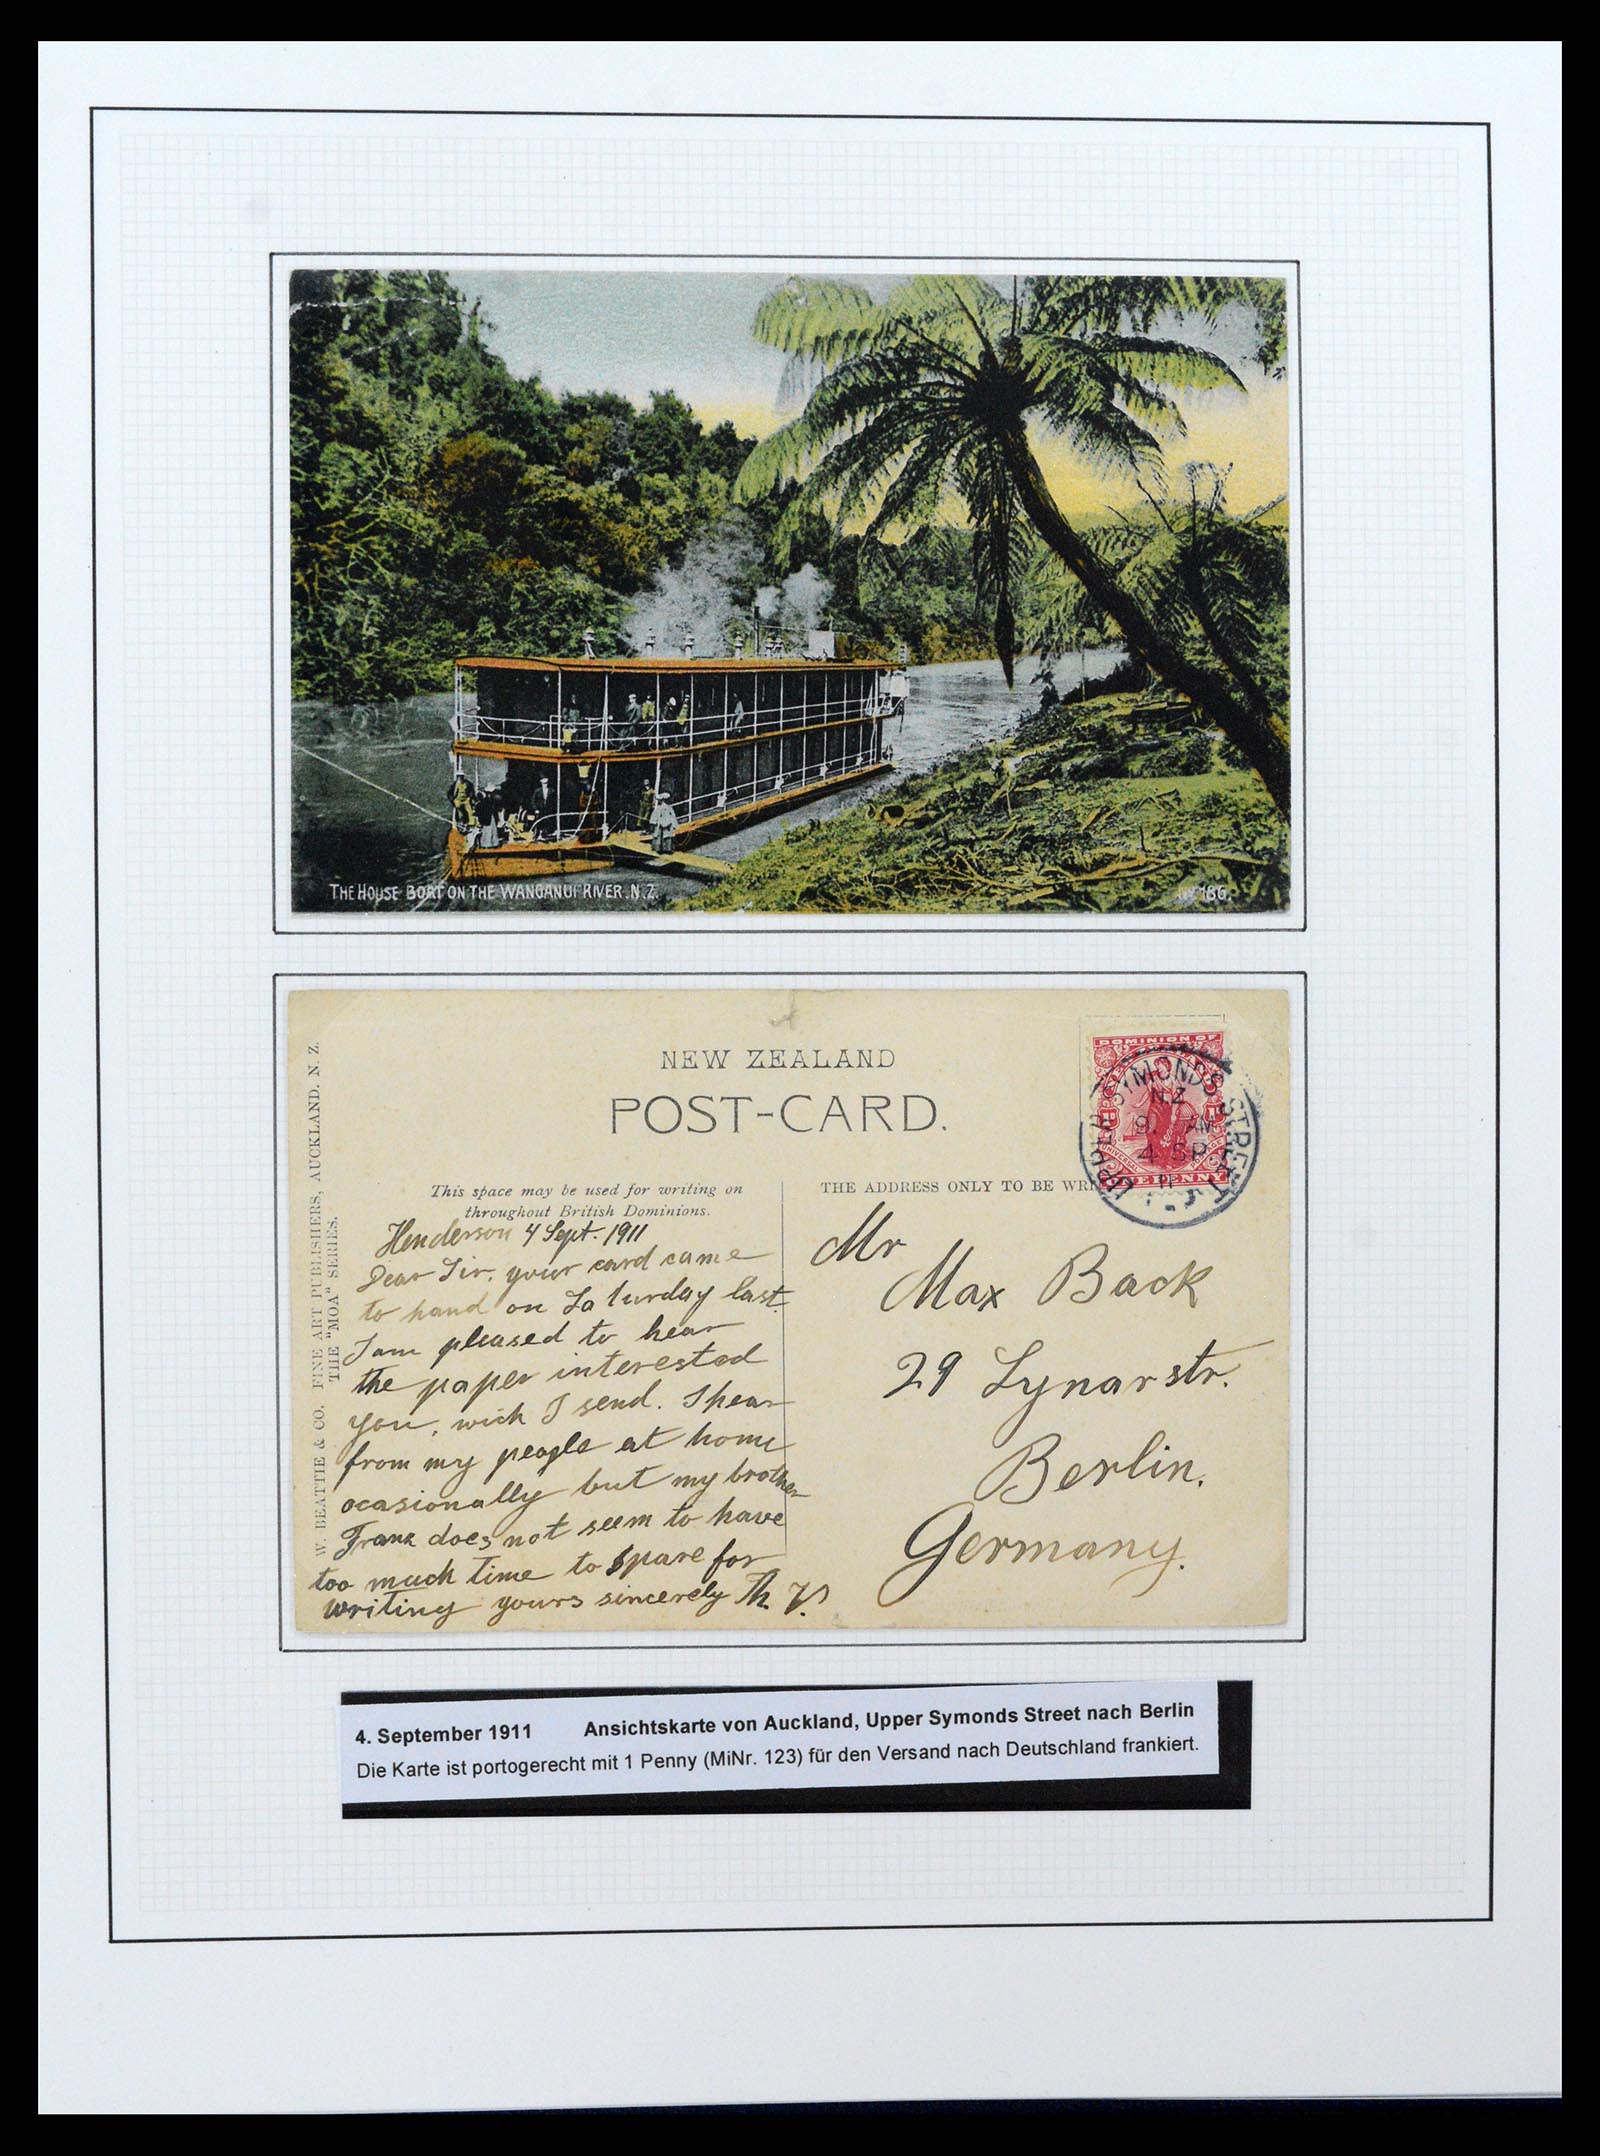 THE HOUSE BOAT ON THE WANGANUI RIVER. N.Z.
No 186.
NEW ZEALAND
POST-CARD.
This space may be used for writing on
throughout British Dominions.
THE ADDRESS ONLY TO BE WRI
W. BEATTIE & CO. FINE ART PUBLISHERS, AUCKLAND. N. Z.
THE "MOA" SERIES.
DOMINION OF
ONE PENNY
UPPER SYMONDS STREET
N.Z
9. AM
4 SP
11
Henderson 4 Sept. 1911
Dear Sir, your card came
to hand on Saturday last.
I am pleased to hear
the paper interested
you, wich I send. I hear
from my people at home
ocasionally but my brother
Franz does not seem to have
too much time to spare for
writing yours sincerely Th. V.
Mr
Max Back
29 Lynarstr.
Berlin.
Germany.
4. September 1911 Ansichtskarte von Auckland, Upper Symonds Street nach Berlin
Die Karte ist portogerecht mit 1 Penny (MiNr. 123) für den Versand nach Deutschland frankiert.